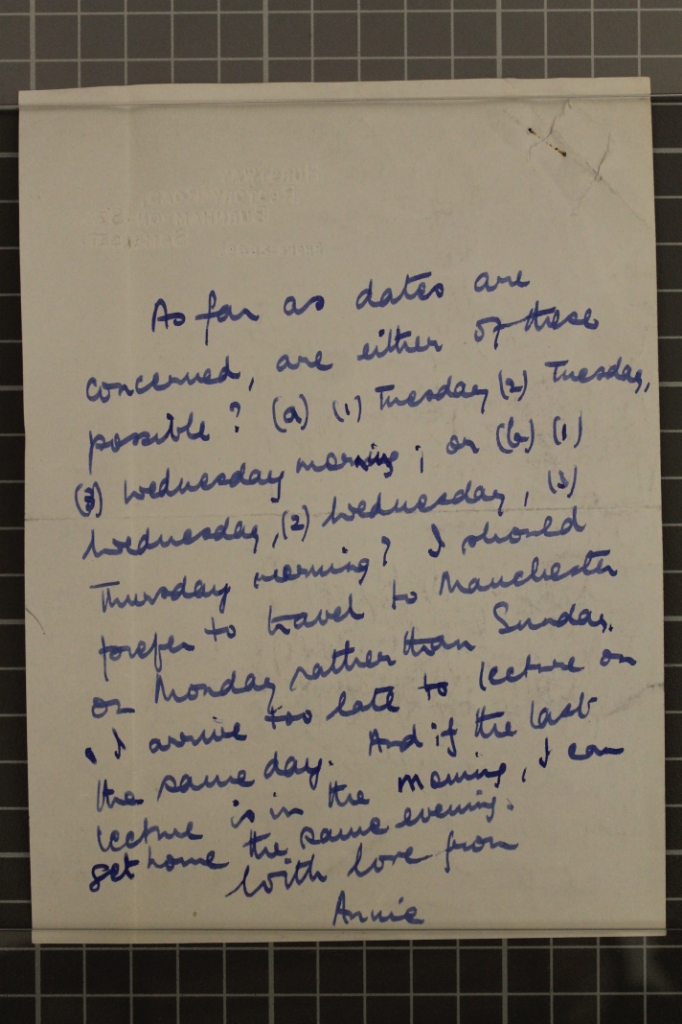 As far as dates are
concerned, are either of these
possible? (a) (1) Tuesday (2) Tuesday,
(3) Wednesday morning; or (b) (1)
Wednesday, (2) Wednesday, (3)
Thursday morning? I should
prefer to travel to Manchester
on Monday rather than Sunday.
I arrive too late to lecture on
the same day. And if the last
lecture is in the morning, I can
get home the same evening.
With love from
Annie